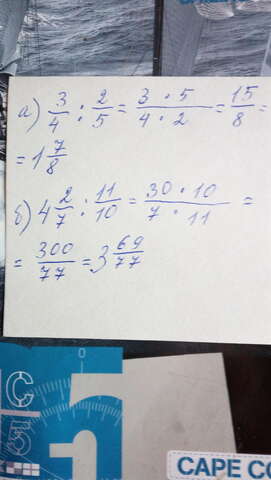 а) 3/4 : 2/5 = 3 · 5 / 4 · 2 = 15/8 =
= 1 7/8
б) 4 2/7 : 11/10 = 30 · 10 / 7 · 11 =
= 300/77 = 3 69/77
C
5
CAPE CO